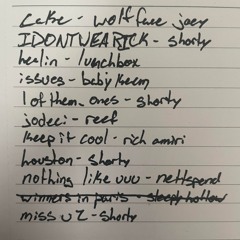 cake - wolfface joey
IDONTWEARICK - shorty
healin - lunchbox
issues - babykeem
1 of them ones - shorty
jodeci - reef
keep it cool - rich amiri
houston - shorty
nothing like uuu - nettspend
winners in paris - sleepy hallow
miss u 2 - shorty